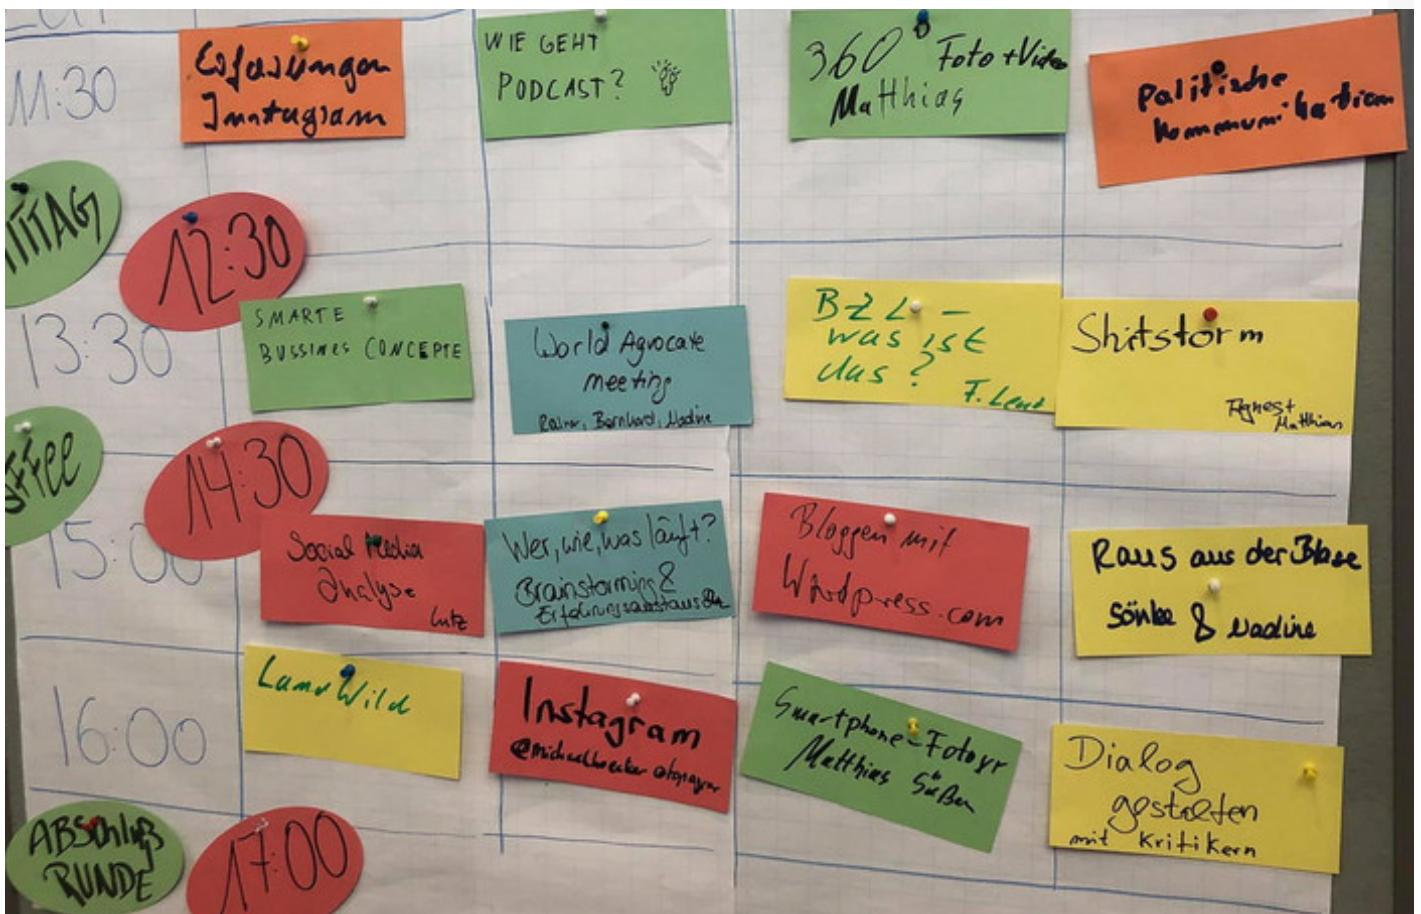 11:30
Erfahrungen
Instagram
WIE GEHT
PODCAST?
360° Foto + Video
Matthias
Politische
Kommunikation
ITTAG
12:30
13:30
SMARTE
BUSSINES CONCEPTE
World Agvocate
meeting
Rainer, Bernhard, Nadine
BZL -
was ist
das?
F. Lenz
Shitstorm
Agnes +
Matthias
FFee
14:30
15:00
Social Media
Analyse
Lutz
Wer, wie, was läuft?
Brainstorming &
Erfahrungsaustausch
Bloggen mit
Wordpress.com
Raus aus der Blase
Sönke & Nadine
16:00
Land Wild
Instagram
Smartphone-Fotogr
Matthias Süßen
Dialog
gestalten
mit Kritikern
ABSchluß
RUNDE
17:00